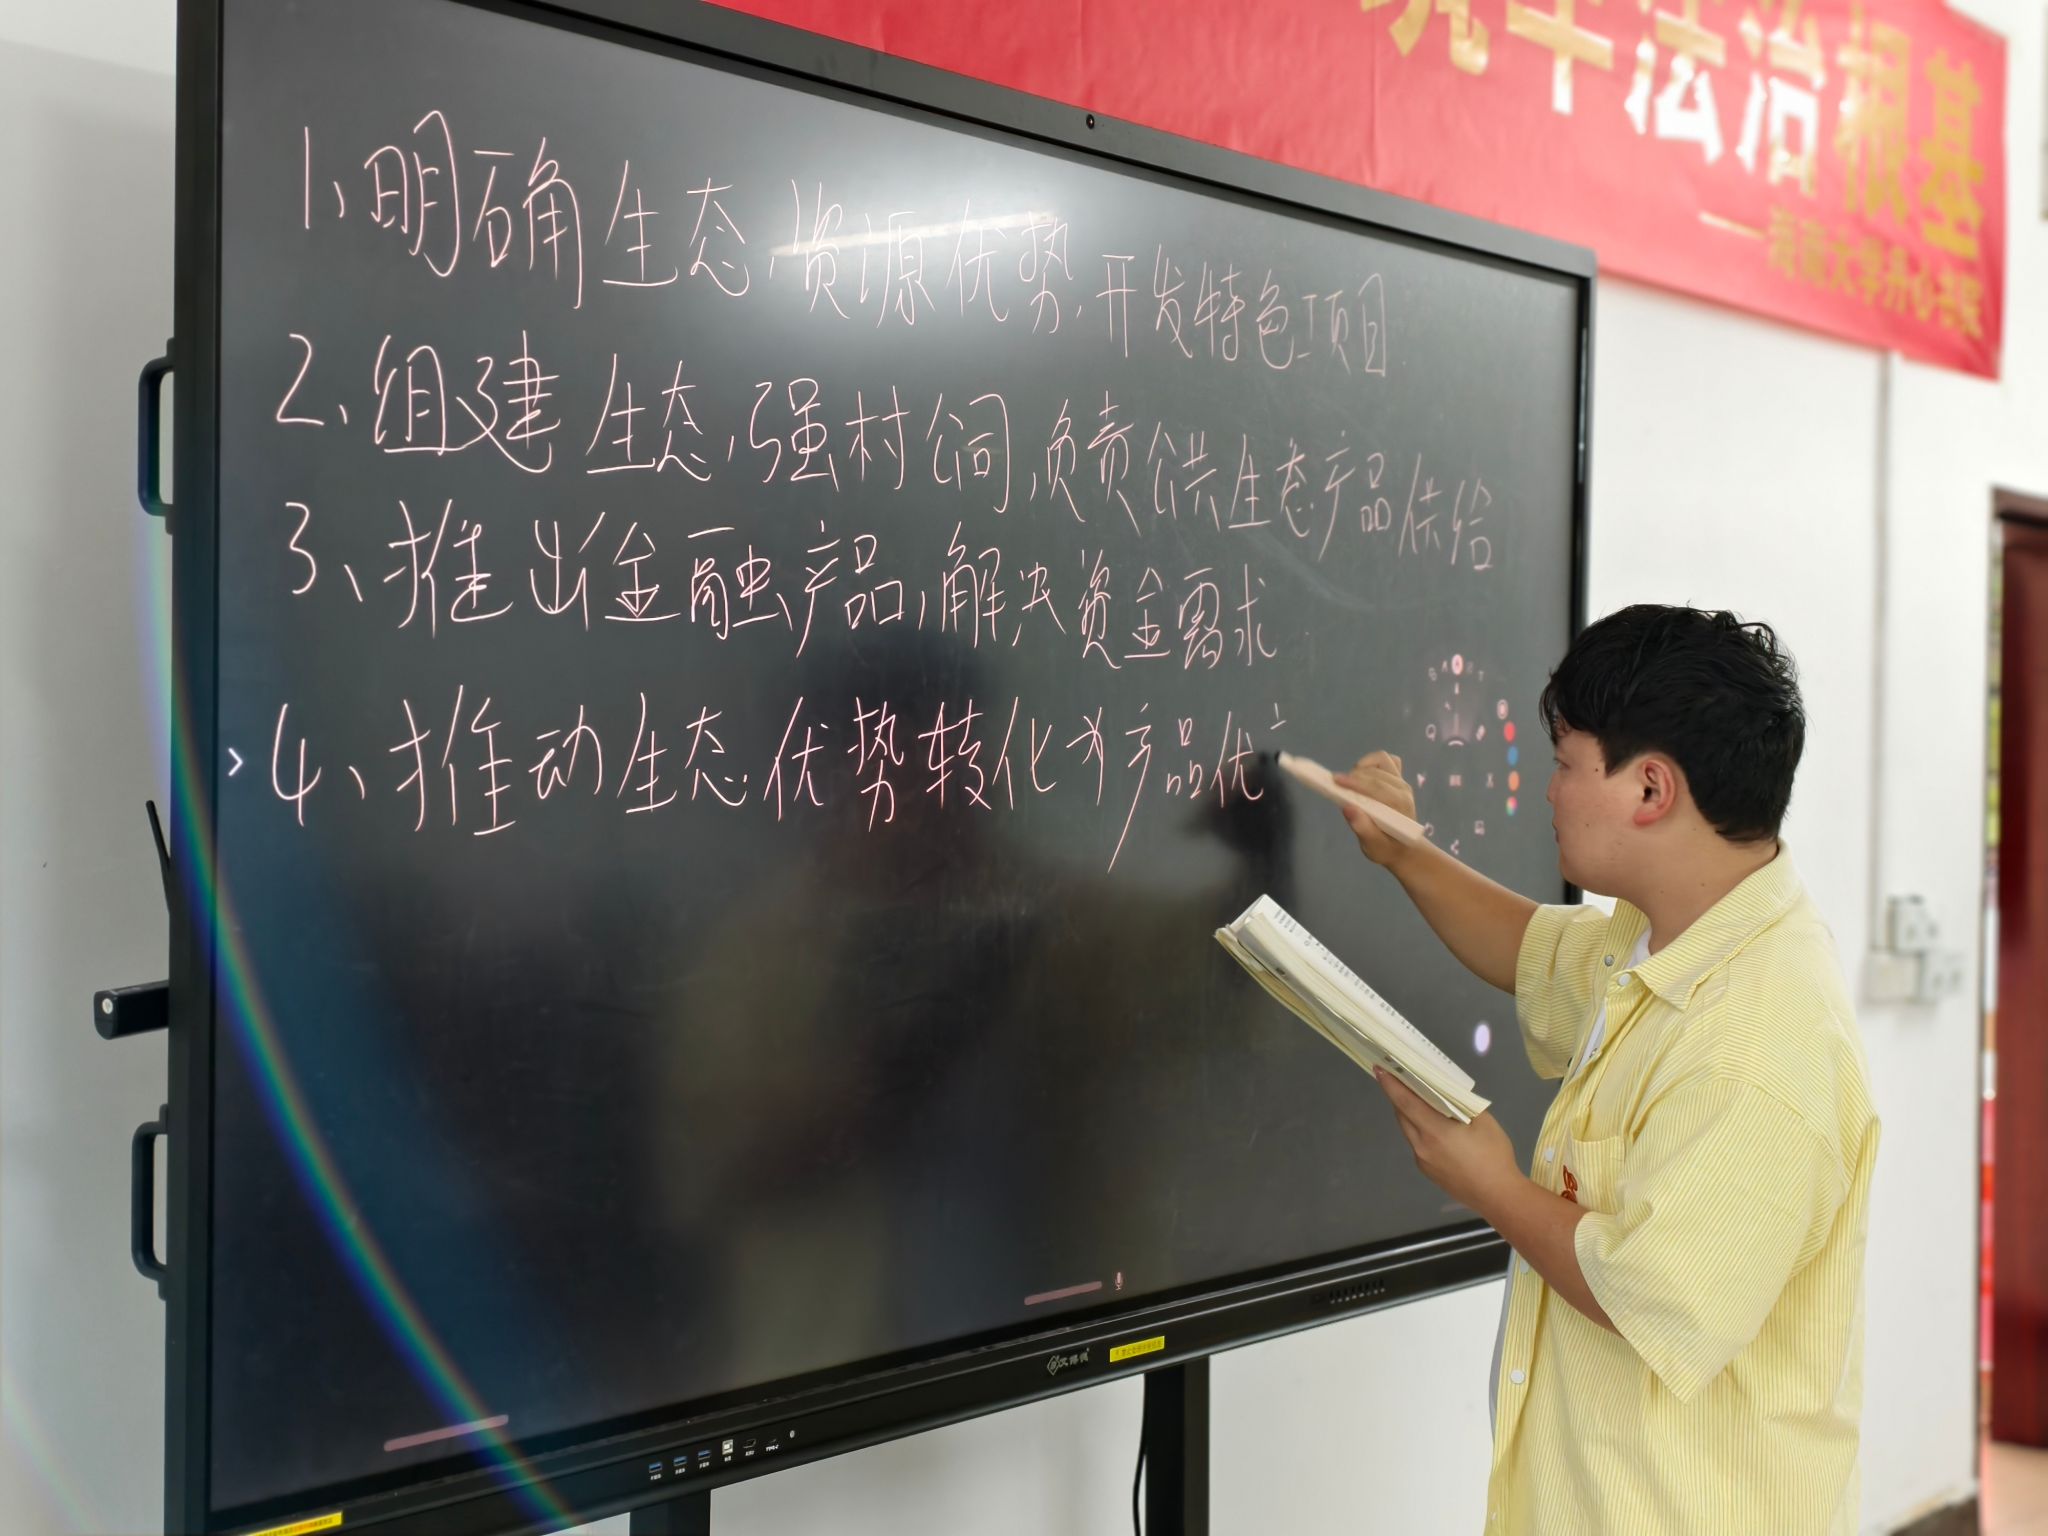 法治根基
1、明确生态,资源优势,开发特色项目.
2、组建生态,强村公司,负责公共生态产品供给
3、推出金融产品,解决资金需求.
4、推动生态优势转化为产品优